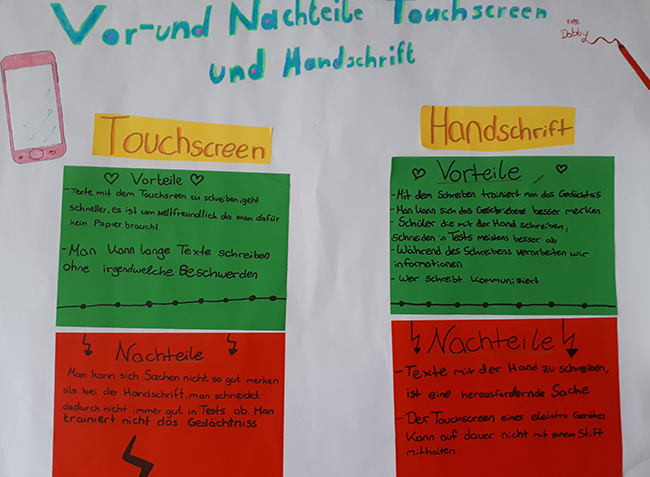 Vor-und Nachteile Touchscreen
und Handschrift
Dobby
Touchscreen
Vorteile
-Texte mit dem Touchsreen zu schreiben, geht
schneller, es ist um weltfreundlich da man dafür
kein Papier braucht
-Man kann lange Texte schreiben
ohne irgendwelche Beschwerden
Nachteile
Man kann sich Sachen nicht so gut merken
als bei der Handschrift, man schneidet
dadurch nicht immer gut in Tests ab. Man
trainiert nicht das Gedächtniss
Handschrift
Vorteile
-Mit dem Schreiben trainiert man das Gedächtnis
-Man kann sich das Geschriebene besser merken
-Schüler die mit der Hand schreiben,
schneiden in Tests meistens besser ab
-Während des Schreibens verarbeiten wir
informationen
- Wer schreibt kommuniziert
Nachteile
- Texte mit der Hand zu schreiben,
ist eine herausfordernde Sache
- Der Touchscreen eines elektro Gerätes
kann auf dauer nicht mit einem Stift
mithalten